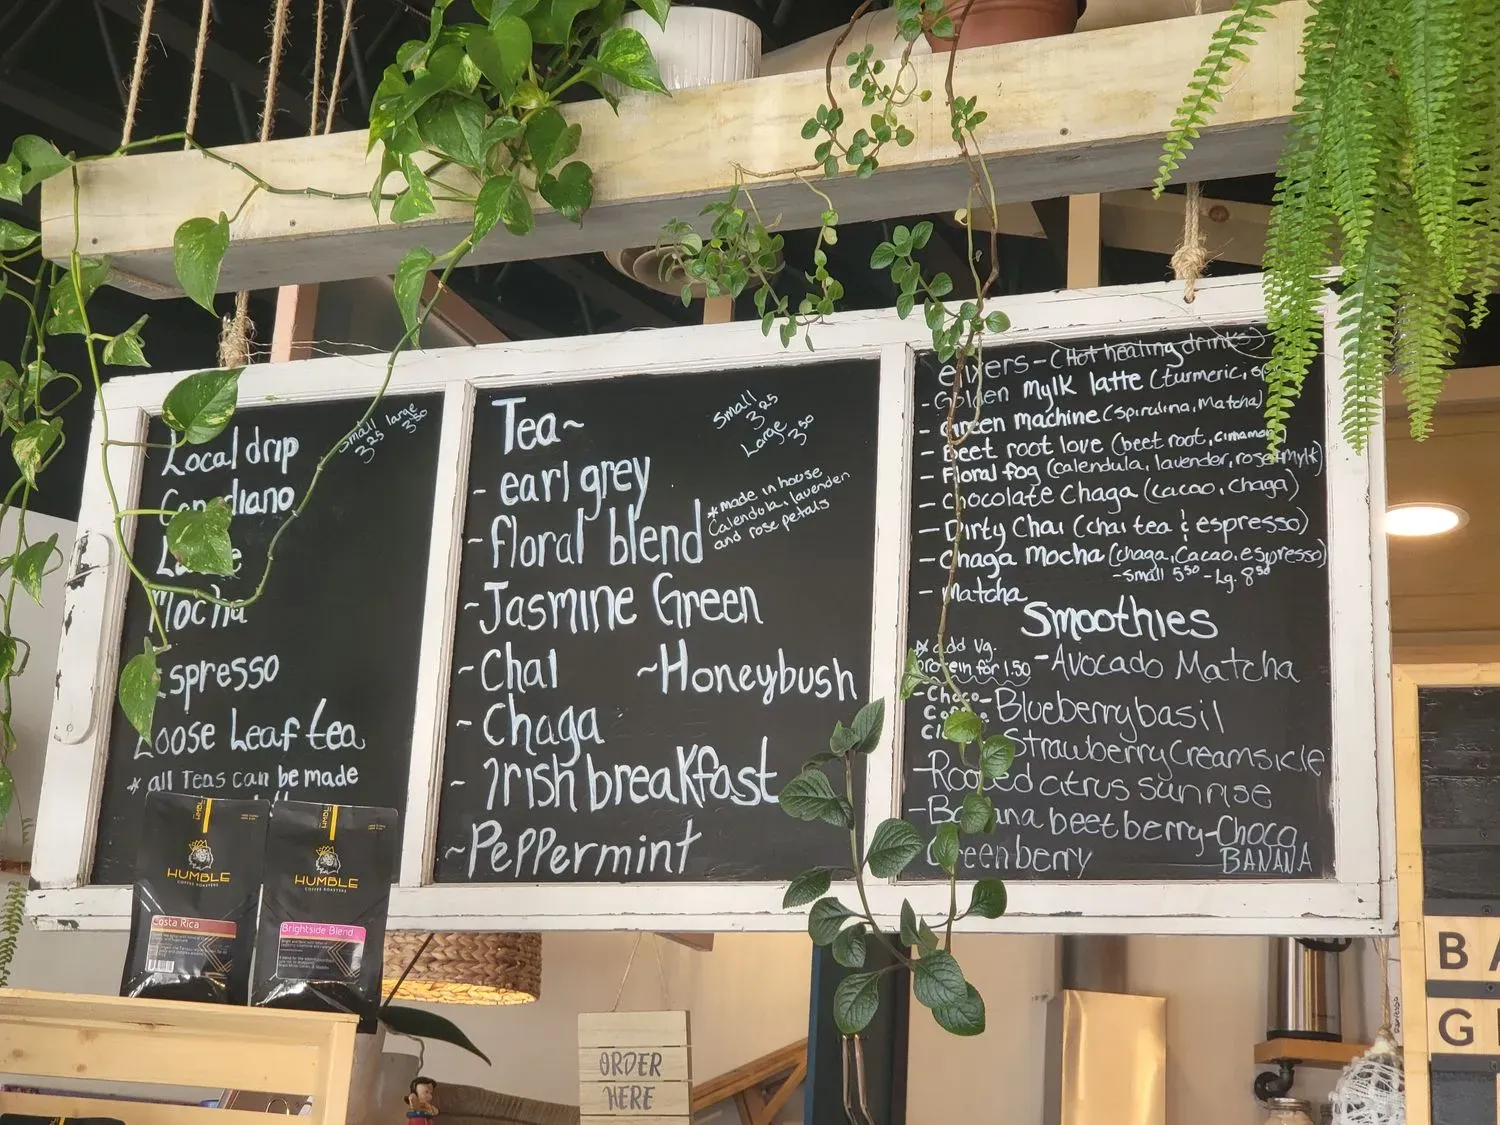 Local drip
small large
3.25 3.50
Mocha
Espresso
Loose Leaf tea
* all Teas can be made
HUMBLE
COFFEE ROASTERS
Costa Rica
HUMBLE
COFFEE ROASTERS
Brightside Blend
Tea~
Small
3.25
Large 3.50
- earl grey
- floral blend
* made in house
Calendula, lavender
and rose petals
- Jasmine Green
- Chai ~Honeybush
- Chaga
- Irish breakfast
~Peppermint
elixers - (Hot healing drinks)
- Golden mylk latte (turmeric,
- Green machine (spirulina, Matcha)
- Beet root love (beet root, cinnamon
- Floral fog (calendula, lavender, rose+mylk)
- Chocolate Chaga (cacao, chaga)
- Dirty Chai (chai tea & espresso)
- Chaga Mocha (chaga, cacao, espresso)
- small 5.50 - Lg. 8.50
- Matcha
Smoothies
* add Vg.
protein for 1.50
- Avocado Matcha
- Blueberry basil
Strawberry Creamsicle
- Rooted citrus sunrise
- Banana beet berry - Choco
BANANA
Greenberry
ORDER
HERE